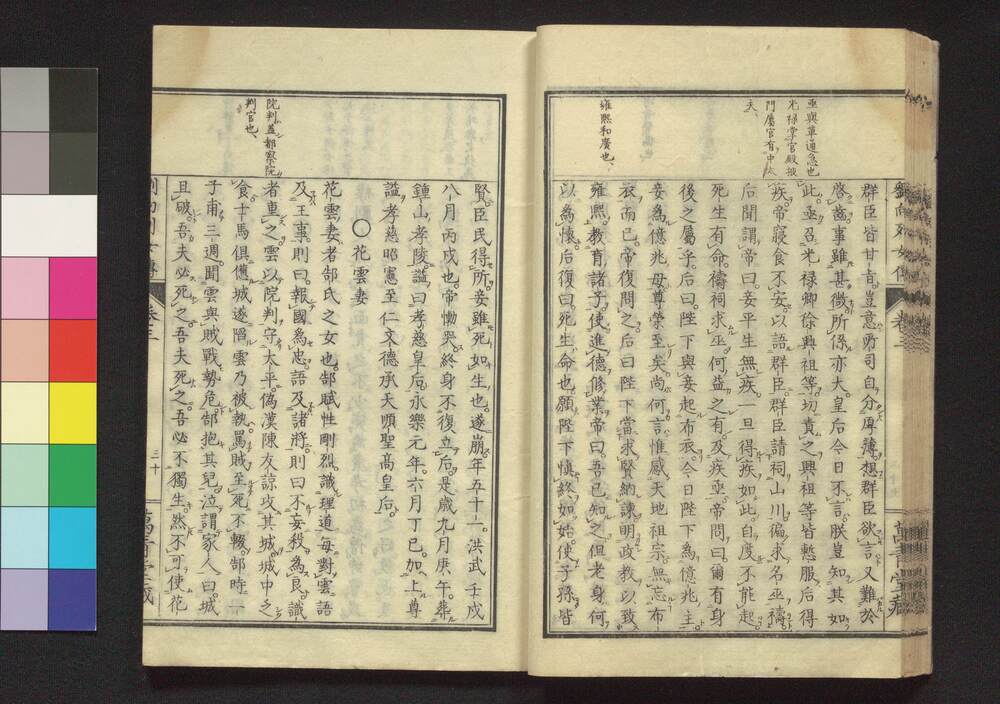 亟與革通急也
光祿掌官殿掖
門屬官有中大
夫、
雍熙和廣也、
劉向列女傳
卷三
萬青堂藏
群臣皆甘旨。豈意所司自分厚薄。想群臣欲言。又難於
啓齒。事雖甚微。所係亦大。皇后今日不言。朕豈知其如
此。亟召光祿卿徐興祖等。切責之。興祖等皆慙服。后得
疾。帝寢食不安。以語群臣。群臣請祠山川。徧求名巫禱。
后聞謂帝曰。妾平生無疾。一旦得疾如此。自度不能起。
死生有命。禱祠求巫。何益之有。及疾亟。帝問曰。爾有身
後之屬乎。后曰。陛下與妾起布衣。今日陛下為億兆主。
妾為億兆母。尊榮至矣。尚何言。惟感天地祖宗。無忘布
衣而已。帝復問之。后曰。陛下當求賢納諫。明政教。以致
雍熙。教育諸子。使進德修業。帝曰。吾已知之。但老身何
以為懷。后復曰。死生命也。願陛下慎終如始。使子孫皆
院判盖都察院
判官也、
賢臣民得所。妾雖死如生也。遂崩年五十一。洪武壬戌
八月丙戌也。帝慟哭終身不復立后。是歲九月庚午。葬
鍾山孝陵。諡曰孝慈皇后。永樂元年。六月丁巳。加上尊
謚孝慈昭憲至仁文德承天順聖高皇后。
〇花雲妻
花雲妻者郜氏之女也。郜賦性剛烈。識理道。每對雲語
及王事。則曰。報國為忠。語及諸將。則曰不妄殺為良。識
者重之。雲以院判守太平。偽漢陳友諒攻其城。城中之
食士馬俱憊。城遂陷。雲乃被執。罵賊至死不輟。郜時一
子甫三週。聞雲與賊戰勢危。郜抱其兒。泣謂家人曰。城
且破。吾夫必死之。吾夫死之。吾必不獨生。然不可使花
卷三
三十